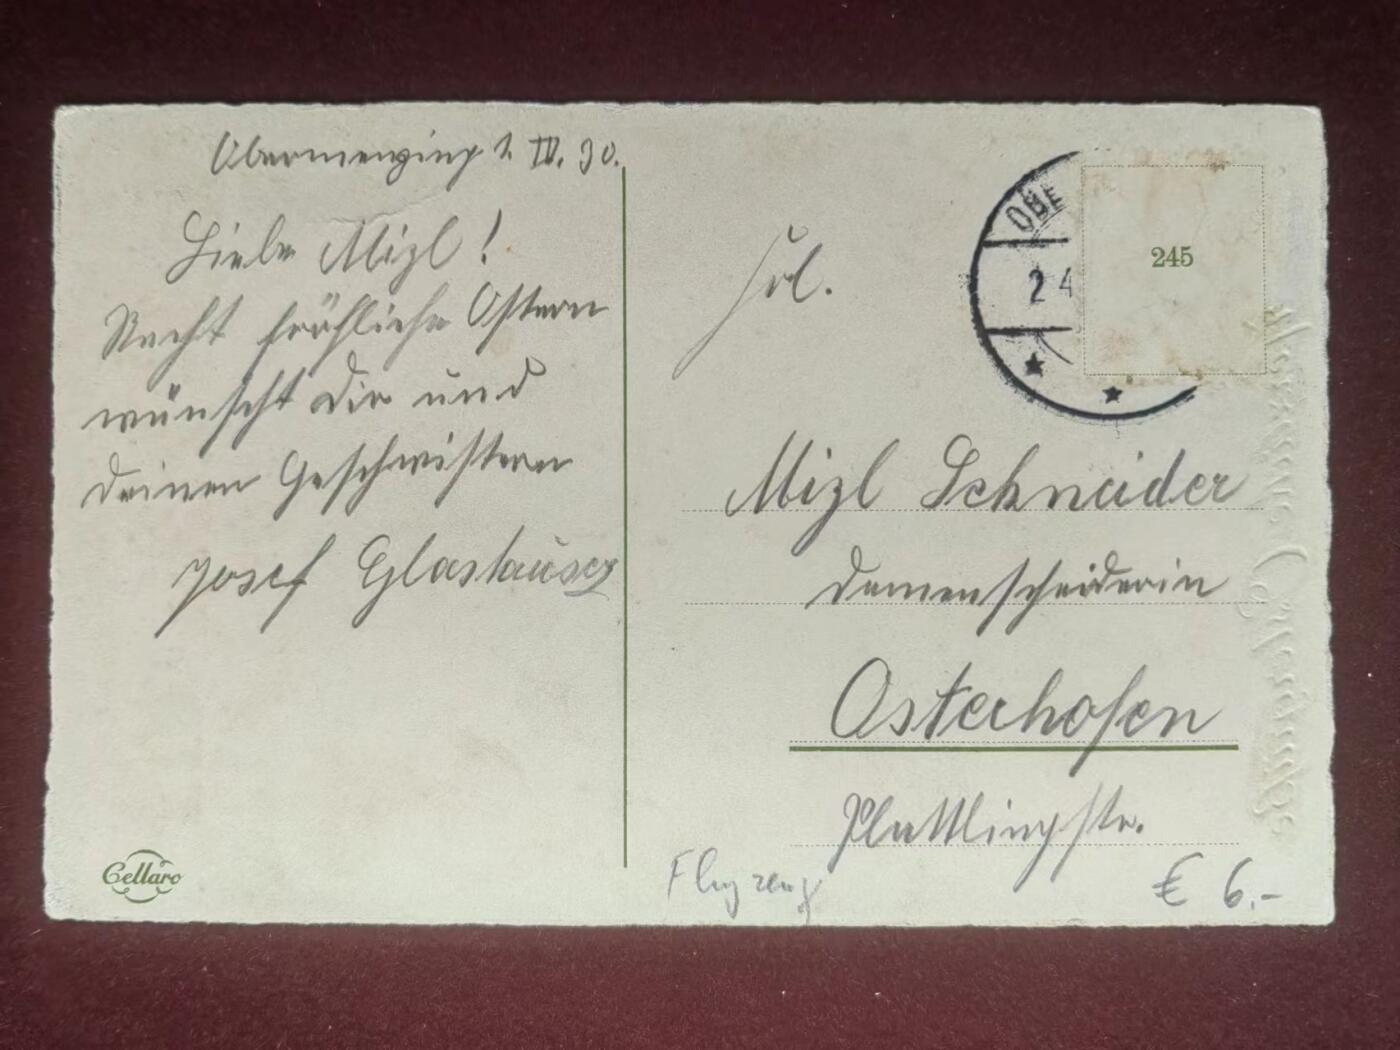 Obermenzing 1. IV. 30.
Liebe Mizl!
Recht fröhliche Ostern
wünscht Dir und
deinen Geschwistern
Josef Glashauser
Cellaro
Frl.
OBE
2 4
245
Mizl Schneider
Damenscheiderin
Osterhofen
Plattlingstr.
Flugzeug
€ 6,-